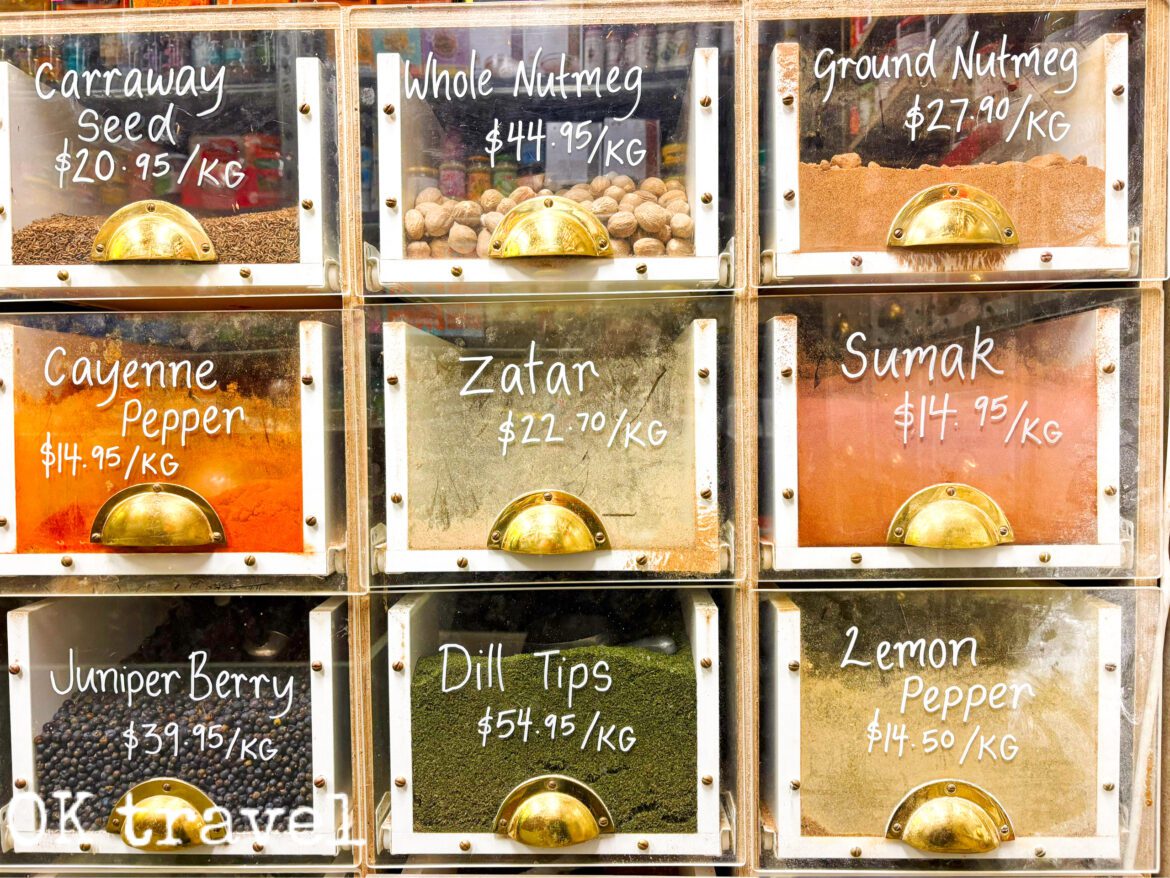 Carraway
Seed
$20.95/KG
Whole Nutmeg
$44.95/KG
Ground Nutmeg
$27.90/KG
Cayenne
Pepper
$14.95/KG
Zatar
$22.70/KG
Sumak
$14.95/KG
Juniper Berry
$39.95/KG
Dill Tips
$54.95/KG
Lemon
Pepper
$14.50/KG
OK travel